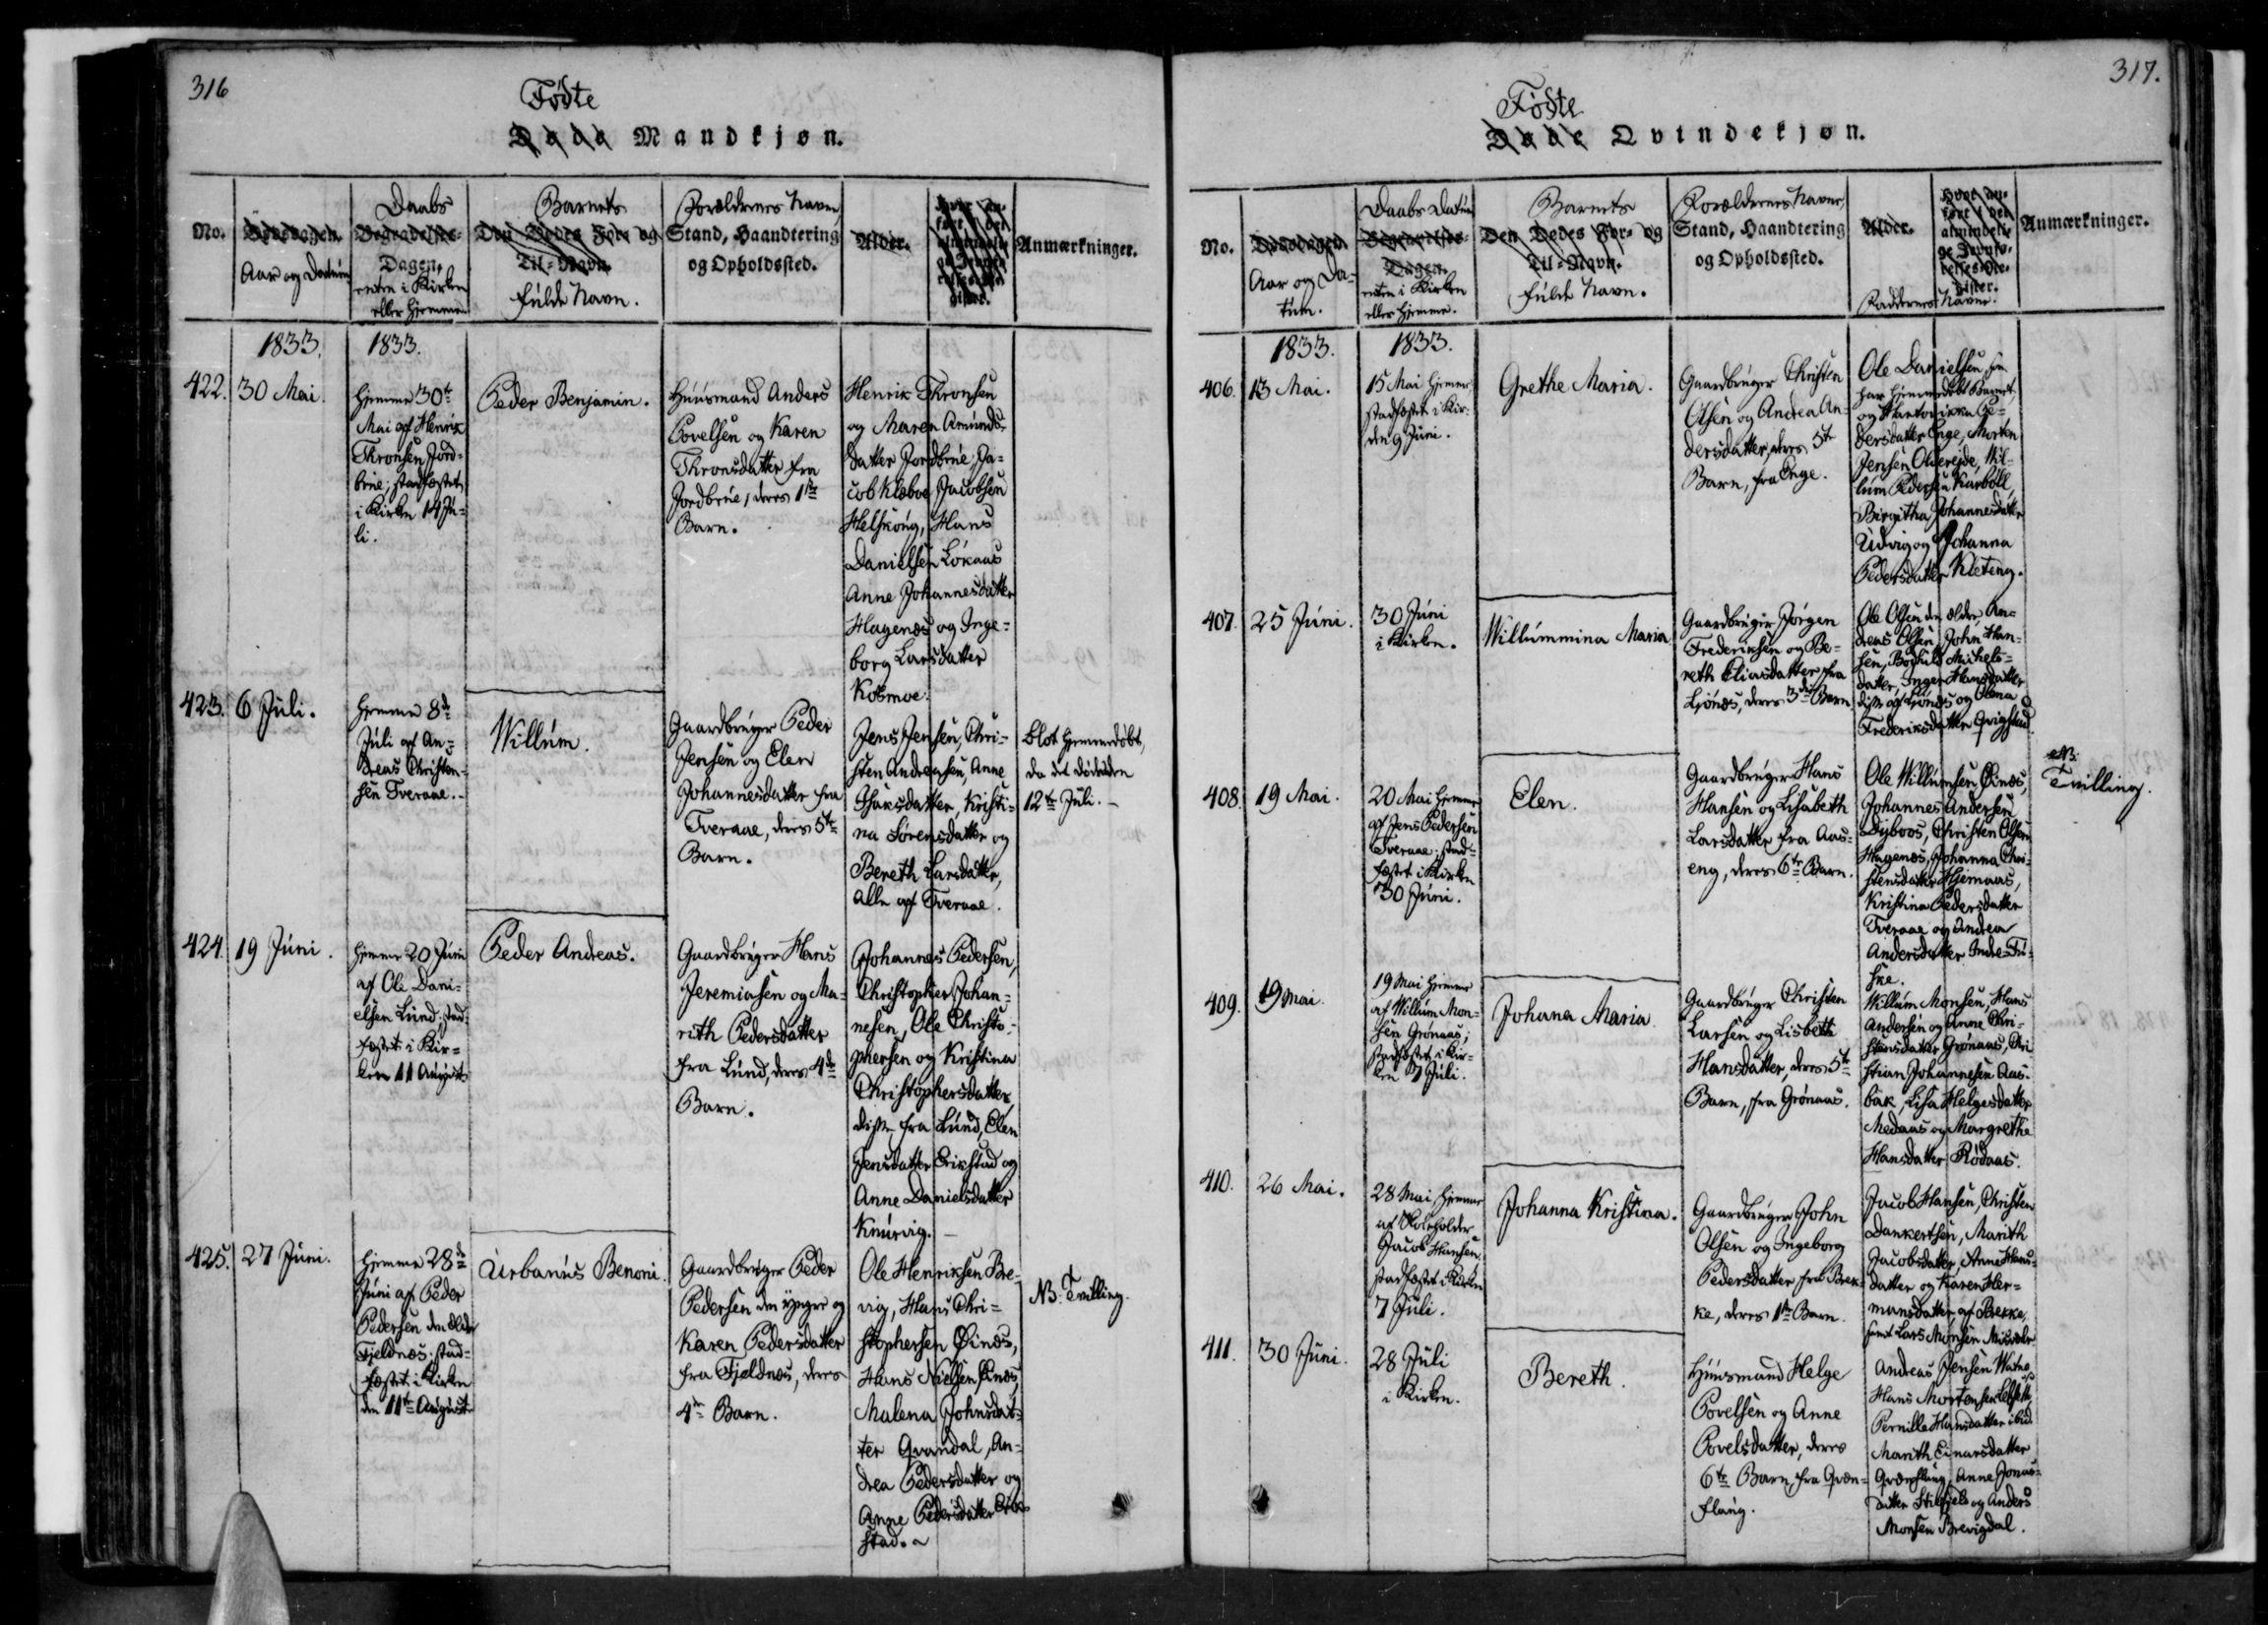 316
Fødte
Døde Mandkjøn.
No.
Dødsdagen.
Aar og Datum
Daabs
Begravelses-
Dagen,
enten i Kirken
eller hjemme
Barnets
Den Dødes For- og
Til-Navn.
fulde Navn.
Forældrenes Navne,
Stand, Haandtering
og Opholdssted.
Alder.
Anmærkninger.
1833.
1833.
422.
30 Mai.
Hjemme 30te
Mai af Henrik
Thronsen Jord-
brue; stadfæstet
i Kirken 14 Ju-
li.
Peder Benjamin.
Huusmand Anders
Povelsen og Karen
Thronsdatter fra
Jordbrue, deres 1ste
Barn.
Henrik Thronsen
og Maren Amunds-
datter Jordbrue, Ja-
cob Klæboe Jacobsen
Helskong, Hans
Danielsen Løkaas
Anne Johannesdatter
Hagenæs og Inge-
borg Larsdatter
Kosmoe.
423.
6 Juli.
Hjemme 8de
Juli af An-
dreas Christen-
sen Tveraae.
Willum.
Gaardbruger Peder
Jensen og Elen
Johannesdatter fra
Tveraae, deres 5te
Barn.
Jens Jensen, Chri-
sten Andreasen, Anne
Isaksdatter, Kristi-
na Sørensdatter og
Bereth Larsdatter,
Alle af Tveraae.
blot hjemmedøbt,
da det døde den
12te Juli.
424.
19 Juni.
Hjemme 20 Juni
af Ole Dani-
elsen Lund; stad-
fæstet i Kir-
ken 11 August
Peder Andreas.
Gaardbruger Hans
Jeremiasen og Ma-
rith Pedersdatter
fra Lund, deres 4de
Barn.
Johannes Pedersen,
Christopher Johan-
nesen, Ole Christo-
phersen og Kristina
Christophersdatter,
disse fra Lund, Elen
Jensdatter Erikstad og
Anne Danielsdatter
Knurvig.
425.
27 Juni.
Hjemme 28de
Juni af Peder
Pedersen den ældre
Fjeldnæs; stad-
fæstet i Kirken
den 11te August
Urbanus Benoni.
Gaardbruger Peder
Pedersen den yngre og
Karen Pedersdatter
fra Fjeldnæs, deres
4de Barn.
Ole Henriksen Bre-
vig, Hans Chri-
stophersen Øinæs,
Hans Nielsen Øinæs
Malena Johnsdat-
ter Qvandal, An-
drea Pedersdatter og
Anne Pedersdatter Erik-
stad.
NB. Tvilling.
317.
Fødte
Døde Qvindekjøn.
No.
Dødsdagen
Aar og Da-
tum.
Daabs Datum
Begravelses-
Dagen.
enten i Kirken
eller hjemme.
Barnets
Den Dødes For- og
Til-Navn.
fulde Navn.
Forældrenes Navne,
Stand, Haandtering
og Opholdssted.
Alder.
Hvor an-
ført i det
almindeli-
ge Jevnfø-
relses-Re-
gister.
Faddernes Navne.
Anmærkninger.
1833.
1833.
406.
13 Mai.
15 Mai hjemme,
stadfæstet i Kir-
den 9 Juni.
Grethe Maria.
Gaardbruger Christen
Olsen og Andrea An-
dersdatter, deres 5te
Barn, fra Enge.
Ole Danielsen som
har hjemmedøbt Barnet
dersdatter Enge, Morten
Jensen Olvereide, Wil-
lum Pedersen Karbøll
Birgitha Johannesdatter
Udvig og Johanna
Pedersdatter Kleteng.
407.
25 Juni.
30 Juni
i Kirken.
Willummina Maria
Gaardbruger Jørgen
Frederiksen og Be-
reth Eliasdatter fra
Ljønæs, deres 3die Barn.
Ole Olsen den ældre, An-
dreas Olsen, John Han-
sen, Boghild Michels-
datter, Inger Hansdatter
disse af Ljønæs og Olena
Frederiksdatter Qvigstad.
408.
19 Mai.
20 Mai hjemme
af Jens Pedersen
Tveraae: stad-
fæstet i Kirken
30 Juni.
Elen.
Gaardbruger Hans
Hansen og Lisabeth
Larsdatter fra Aas-
eng, deres 6te Barn.
Ole Willumsen Øinæs,
Johannes Andersen
Dyboos, Christen Olsen
Hagenæs, Johanna Chri-
stensdatter Hjemaas,
Kristina Pedersdatter
Tveraae og Andrea
Andersdatter Indre-Fu-
ske.
NB.
Tvilling.
409.
19 Mai.
19 Mai hjemme
af Willum Mon-
sen Grønaas;
stadfæstet i Kir-
ken 7 Juli.
Johana Maria
Gaardbruger Christen
Larsen og Lisbeth
Hansdatter, deres 5te
Barn, fra Grønaas.
Willum Monsen, Hans
Andersen og Anne Chri-
stensdatter Grønaas, Chri
stian Johannesen Aas-
bak, Lisa Helgesdatter
Medaas og Margrethe
Hansdatter Rødaas.
410.
26 Mai.
28 Mai hjemme
af Skoleholder
Jacob Hansen
stadfæstet i Kirken
7 Juli.
Johanna Kristina.
Gaardbruger John
Olsen og Ingeborg
Pedersdatter fra Brek-
ke, deres 1ste Barn.
Jacob Hansen, Christen
Dankertsen, Marith
Jacobsdatter, Anne Hans-
datter og Karen Her-
mansdatter, af Brekke,
samt Lars Monsen Misvær.
411.
30 Juni.
28 Juli
i Kirken.
Bereth.
Huusmand Helge
Povelsen og Anne
Povelsdatter, deres
6te Barn, fra Græn-
flaug.
Andreas Jensen Watne
Hans Mortensen
Pernille Hansdatter ibid.
Marith Einarsdatter
Grænflaug, Anne Jonas-
datter Stilfjeld og Anders
Monsen Brevigdal.